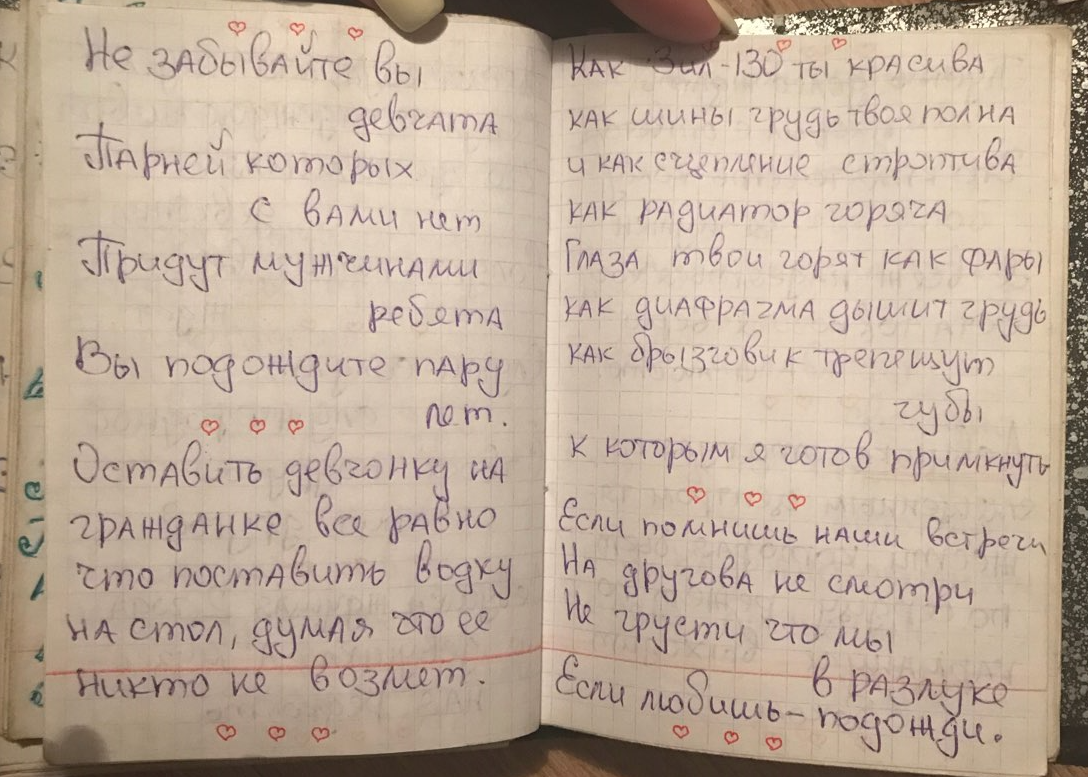 Не забывайте вы
девчата
Парней которых
с вами нет
Придут мужчинами
ребята
Вы подождите пару
лет.
Оставить девчонку на
гражданке все равно
что поставить водку
на стол, думая что ее
никто не возмет.
Как Зил-130 ты красива
как шины грудь твоя полна
и как сцепление строптива
как радиатор горяча
Глаза твои горят как фары
как диафрагма дышит грудь
как брызговик трепещут
губы
к которым я готов примкнуть
Если помнишь наши встречи
На другова не смотри
Не грусти что мы
в разлуке
Если любишь - подожди.